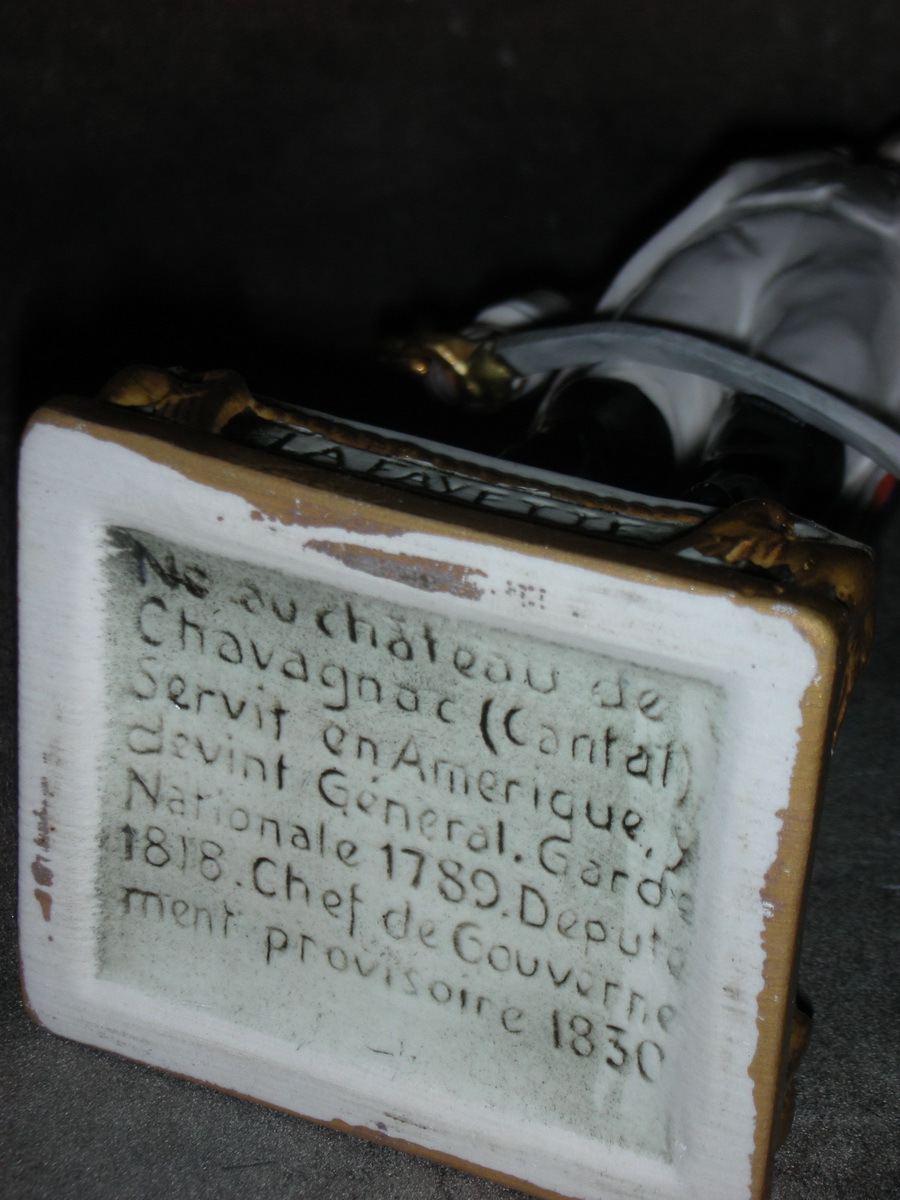 LAFAYETTE
Ne au château de
Chavagnac (Cantal)
Servit en Amerique,
devint Géneral. Garde
Nationale 1789. Deputé
1818. Chef de Gouverne
ment provisoire 1830